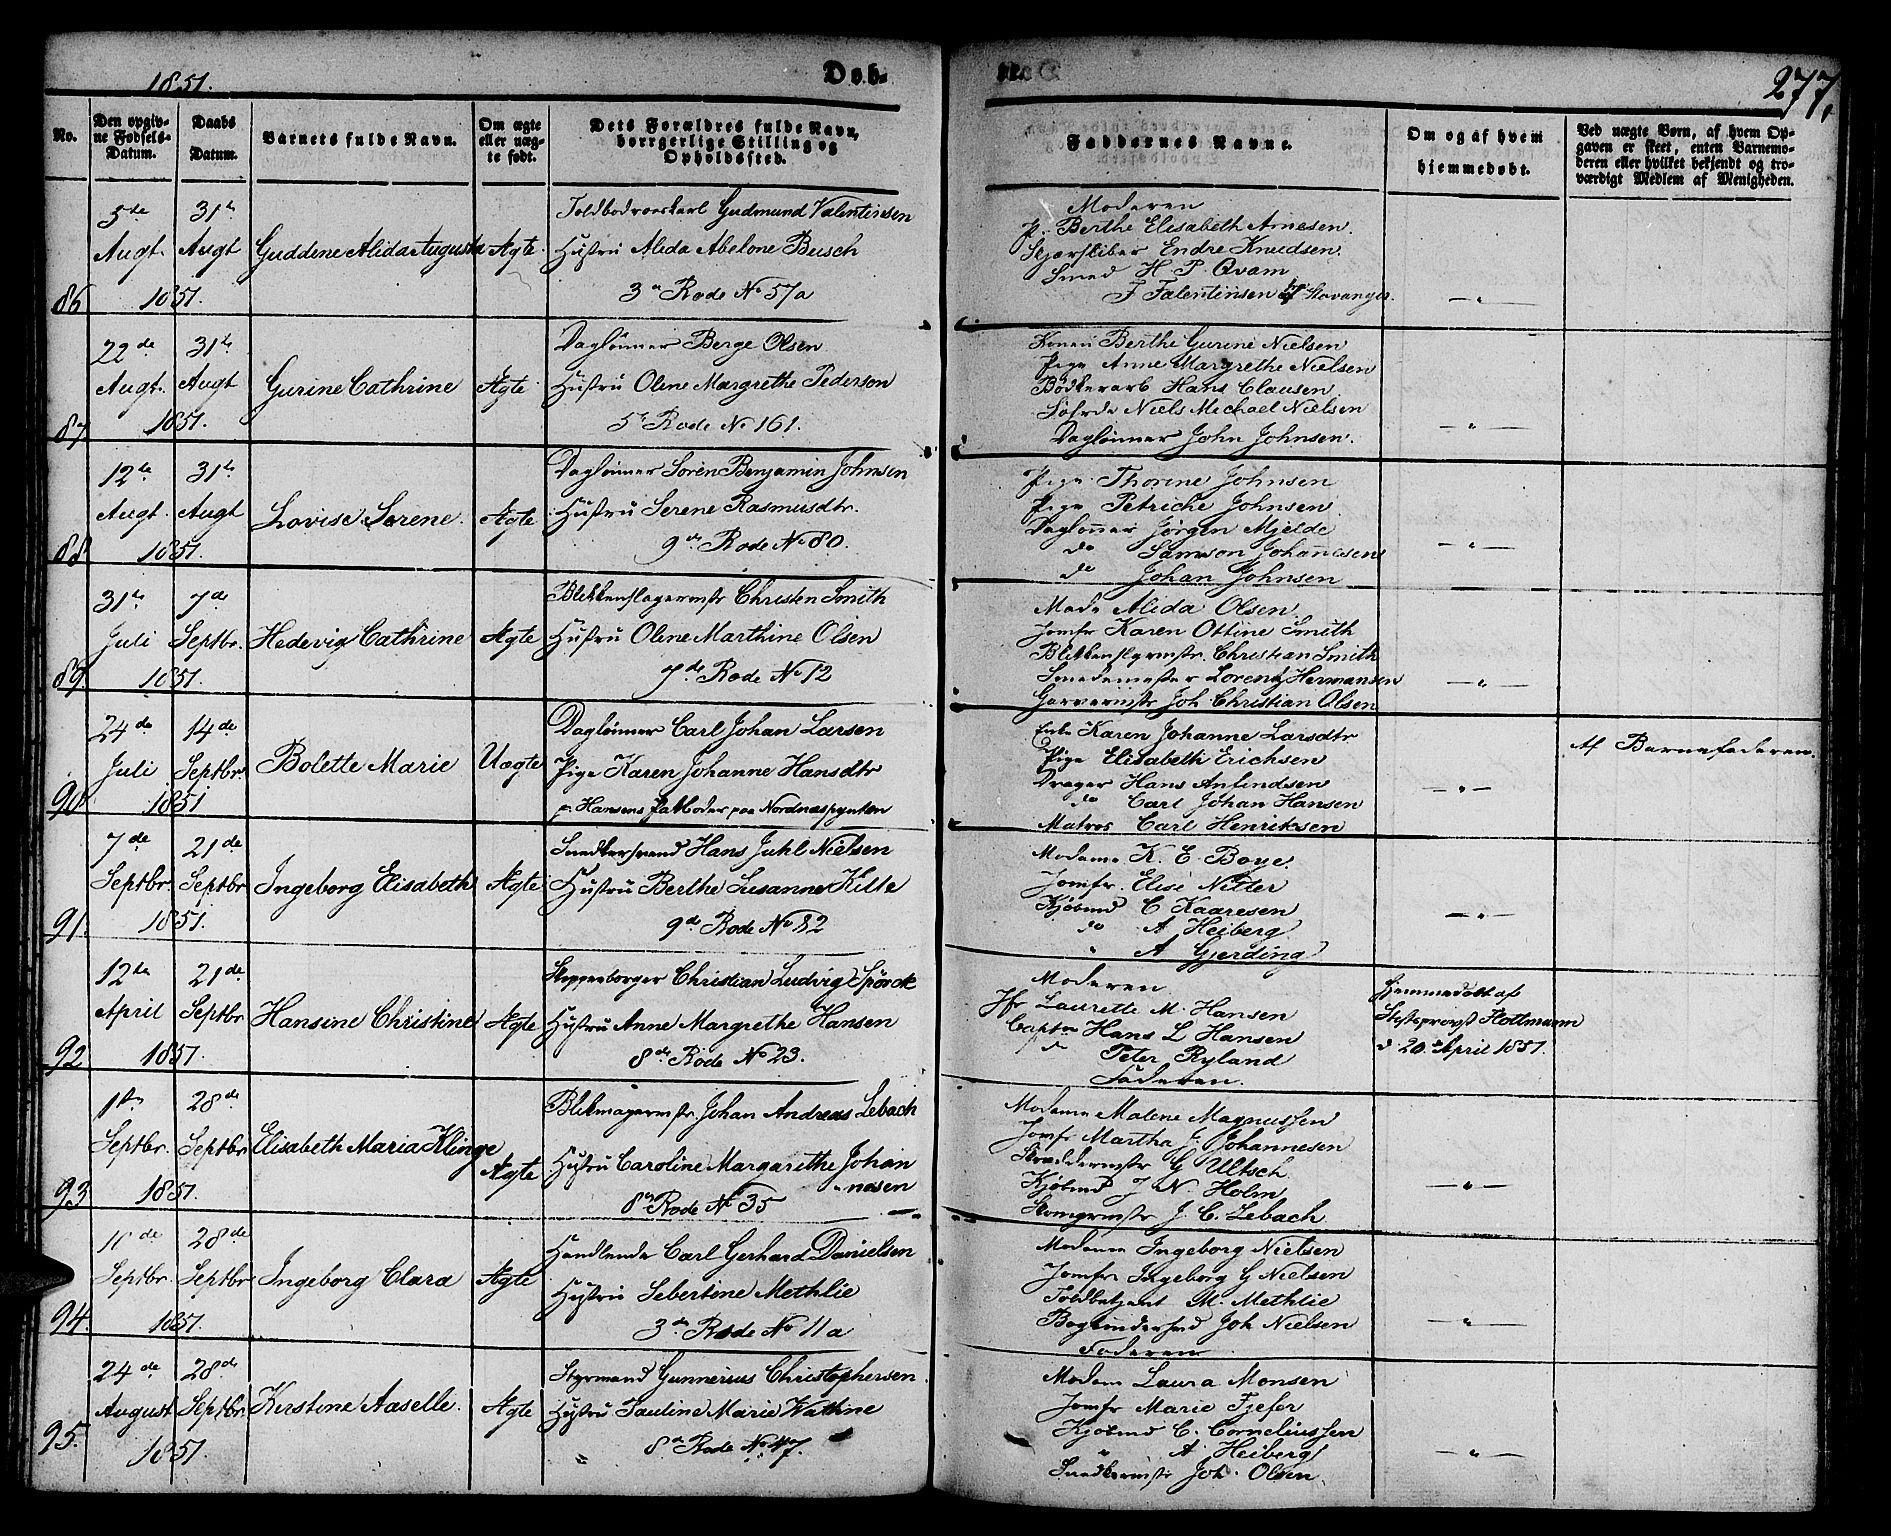 1851.
Døb-
277.
No.
Den opgiv-
ne Fødsels-
Datum.
Daabs
Datum.
Barnets fulde Navn.
Om ægte
eller uæg-
te født.
Dets Forældres fulde Navn,
borrgerlige Stilling og
Opholdssted.
Faddernes Navne.
Om og af hvem
hjemmedøbt.
Ved uægte Børn, af hvem Op-
gaven er skeet, enten Barnemo-
deren eller hvilket bekjendt og tro-
værdigt Medlem af Menigheden.
86
5de Augt. 1851.
31te Augt
Guddene Alida Augusta
Ægte
Gudmund Valentinsen
Hustru Alida Abelone Busch
3de Rode No 57a
Moderen
P. Berthe Elisabeth Arnesen.
Endre Knudsen.
Smed H. P. Qvam
F Falentinsen Stavanger.
— " —
87
22de Augt. 1851.
31te Augt
Gurine Cathrine
Ægte
Daglønner Berge Olsen
Hustru Olene Margrethe Pederson
5te Rode No 161.
Konen Berthe Gurine Nielsen
Pige Anne Margrethe Nielsen
Bødkerarb Hans Clausen
Niels Michael Nielsen
Daglønner John Johnsen.
— " —
88
12te Augt. 1851.
31te Augt
Lovise Serene.
Ægte
Dagløinner Sören Benjamin Johnsen
Hustru Serene Rasmusdtr.
9de Rode No 80.
Pige Thorine Johnsen
Pige Petricke Johnsen.
Dagløner Jørgen Mjelde
do Samson Johannesens
do Johan Johnsen
— " —
89
31te Juli 1851.
7de Septbr.
Hedevig Cathrine
Ægte
Blikkenslagermstr Christen Smith
Hustru Olene Marthine Olsen
7de Rode No 12
Mad. Alida Olsen
Jomfr Karen Ottine Smith
Blikkenslgrmstr. Christian Smith
Smedemester Lorentz Hermansen
Garvermstr Joh Christian Olsen
— " —
90
24de Juli 1851
14de Septbr
Bolette Marie
Uægte
Dagløinner Carl Johan Larsen
Pige Karen Johanne Hansdtr
paa Nordnæspynten
Enke Karen Johanne Larsdtr
Pige Elisabeth Erichsen
Drager Hans Anfindsen
do Carl Johan Hansen
Matros Carl Henriksen
— " —
Af Barnefaderen.
91.
7de Septbr. 1851.
21de Septbr
Ingeborg Elisabeth
Ægte
Snedkersvend Hans Juhl Nielsen
Hustru Berthe Susanne Kitte
9de Rode No 82
Madame K. E. Boye.
Jomfr. Elise Nitter
Kjøbmd C Kaaresen
do A Heiberg
" A Gjerding
— " —
92
12te April 1851.
21de Septbr
Hansine Christine
Ægte
Skipperborger Christian Ludvig Spörck
Hustru Anne Margrethe Hansen
8de Rode No 23.
Moderen
Jfr Laurette M. Hansen
Captn Hans L Hansen
d Peter Ryland
Faderen.
Hjemmedøbt af
Stiftsprovst Hottmann
d 20de April 1851.
93
1ste Septbr. 1851.
28de Septbr
Elisabeth Maria Klinge
Ægte
Johan Andreas Lebach
Hustru Caroline Margarethe Johan
"nesen
8de Rode No 35
Madame Malene Magnussen
Jomfr Martha J. Johannesen
Skræddermstr G Ultsch
Kjøbmd J N. Holm
J. C. Lebach
— " —
94.
11de Septbr. 1851.
28de Septbr
Ingeborg Clara
Ægte
Handlende Carl Gerhard Danielsen
Hustru Sebertine Methlie
3de Rode No 11a
Madame Ingeborg Nielsen
Jomfr Ingeborg G Nielsen
Toldbetjent M. Methlie
Bogbindersvd Joh Nielsen
Faderen
— " —
95.
24de August 1851
28de Septbr
Kirstine Aaselle.
Ægte
Styrmand Gunnerius Christophersen.
Hustru Pauline Marie Wattne
8de Rode No 47.
Madam Laura Monsen
Jomfr Marie
Kjøbmd C. Corneliussen
" A Heiberg
Snedkermstr Joh. Olsen
— " —